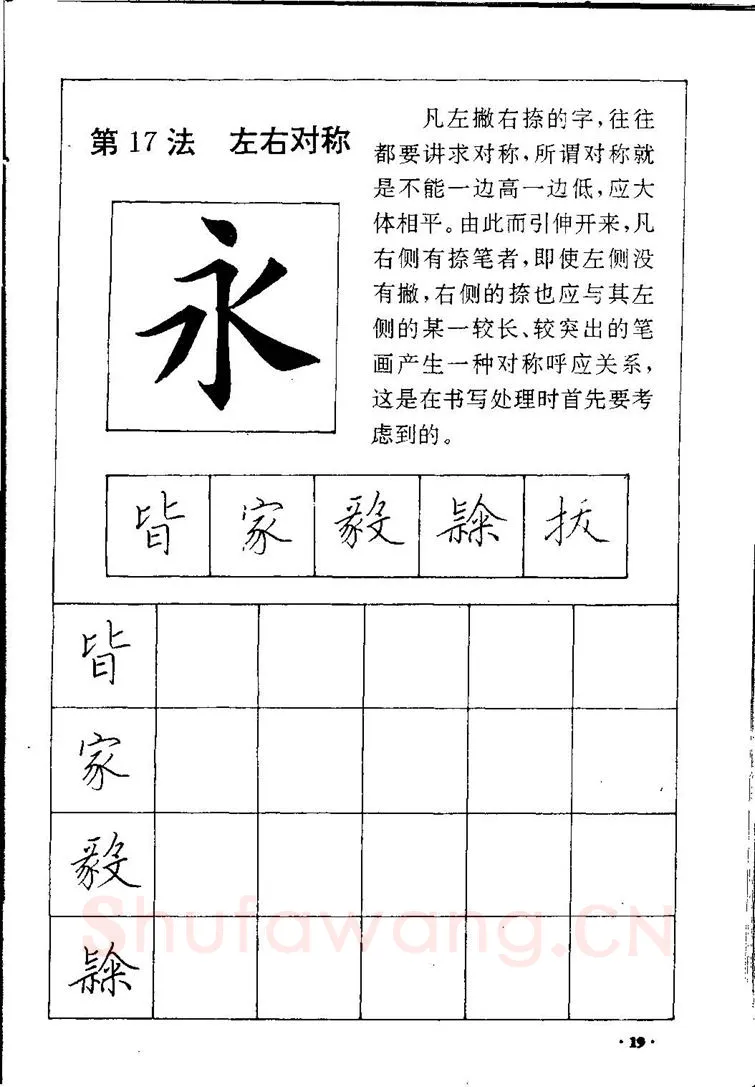 第17法 左右对称
凡左撇右捺的字,往往
都要讲求对称,所谓对称就
是不能一边高一边低,应大
体相平。由此而引伸开来,凡
右侧有捺笔者,即使左侧没
有撇,右侧的捺也应与其左
侧的某一较长、较突出的笔
画产生一种对称呼应关系,
这是在书写处理时首先要考
虑到的。
永
皆 家 毅
皆
家
毅
Shufawang.CN
·19·